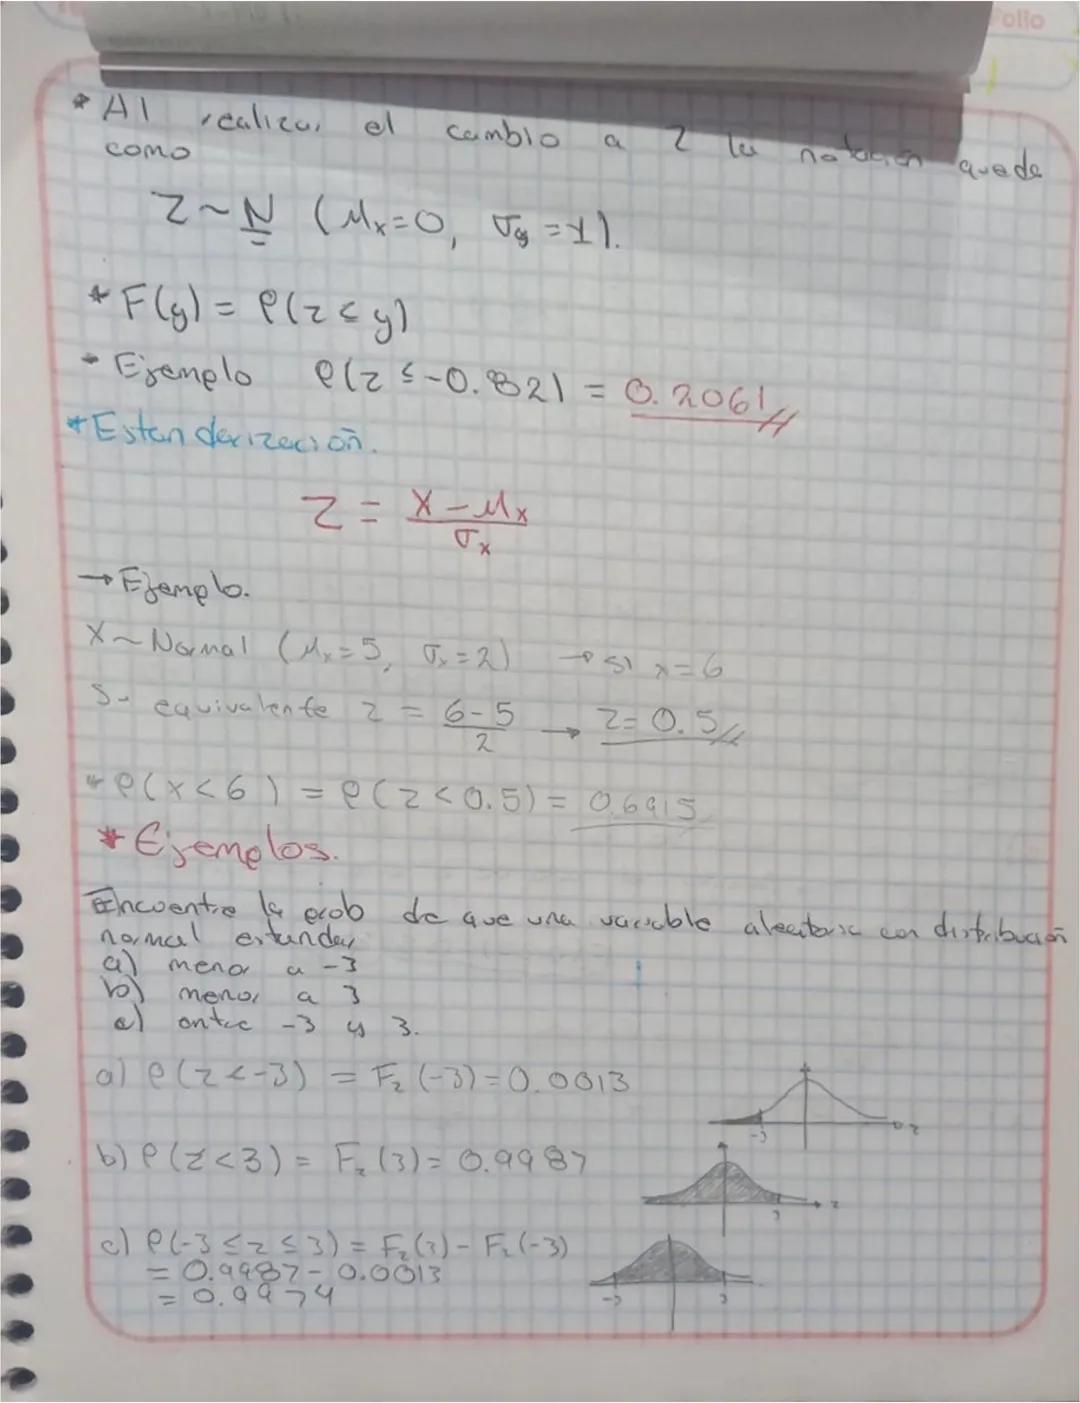 Folio
* Al realizar el cambio a Z la notación queda
como
Z ~ N (Mx=0, σy=1).
* F(y) = P(z ≤ y)
* Ejemplo P(z ≤ -0.82) = 0.2061//
* Estanderización.
Z = (x - Mx) / σx
→ Ejemplo.
X ~ Normal (Mx=5, σx=2) → si x=6
Su equivalente z = (6-5) / 2 → z = 0.5//
* P(x<6) = P(z<0.5) = 0.6915
* Ejemplos.
Encuentre la prob de que una variable aleatoria con distribución
normal estandar
a) menor a -3
b) menor a 3
c) entre -3 y 3.
a) P(z<-3) = Fz(-3) = 0.0013
-3
z
b) P(z<3) = Fz(3) = 0.9987
3
z
c) P(-3 ≤ z ≤ 3) = Fz(3) - Fz(-3)
= 0.9987 - 0.0013
= 0.9974
-3
3